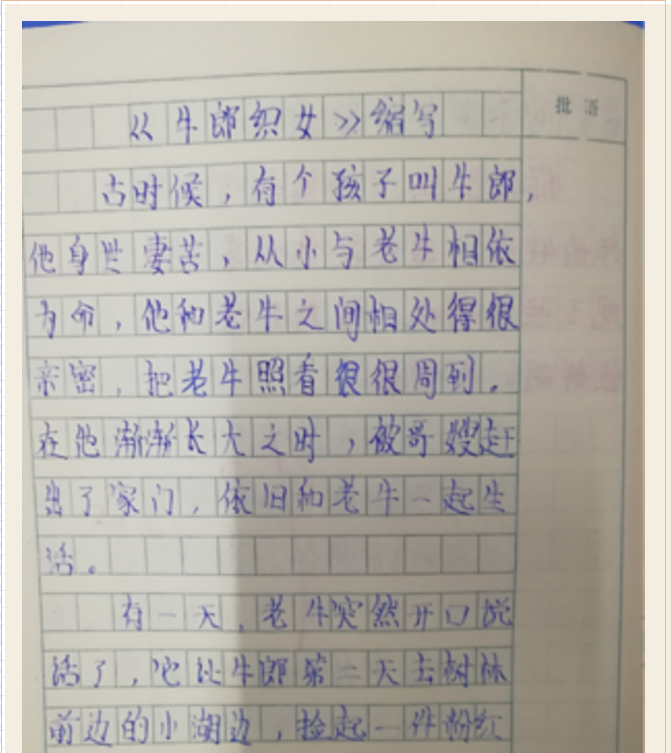 批语
从牛郎织女》缩写
古时候，有个孩子叫牛郎，
他身世妻苦，从小与老牛相依
为命，他和老牛之间相处得很
亲密，把老牛照看很很周到。
在他渐渐长大之时，被哥嫂赶
出了家门，依旧和老牛一起生
活。
有一天，老牛突然开口说
话了，它让牛郎第二天去树林
前边的小湖边，捡起一件粉红